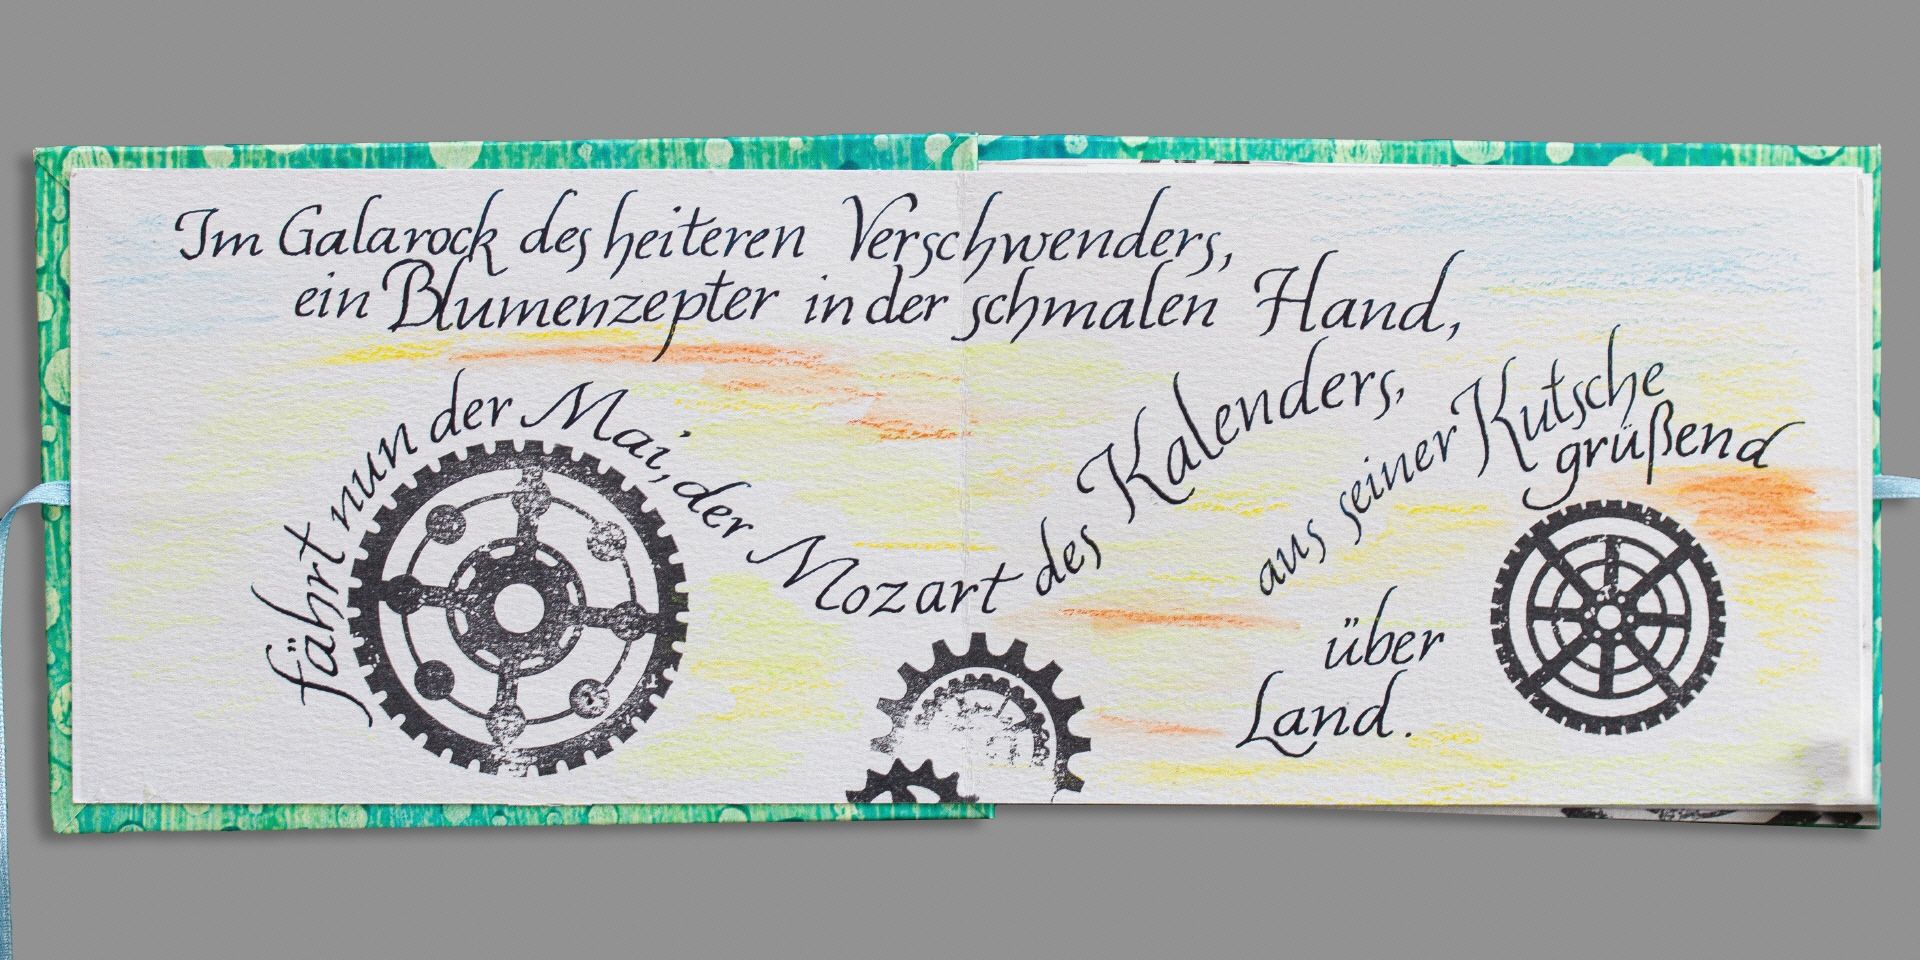 Im Galarock des heiteren Verschwenders,
ein Blumenzepter in der schmalen Hand,
fährt nun der Mai, der Mozart des Kalenders,
aus seiner Kutsche
grüßend
über
Land.